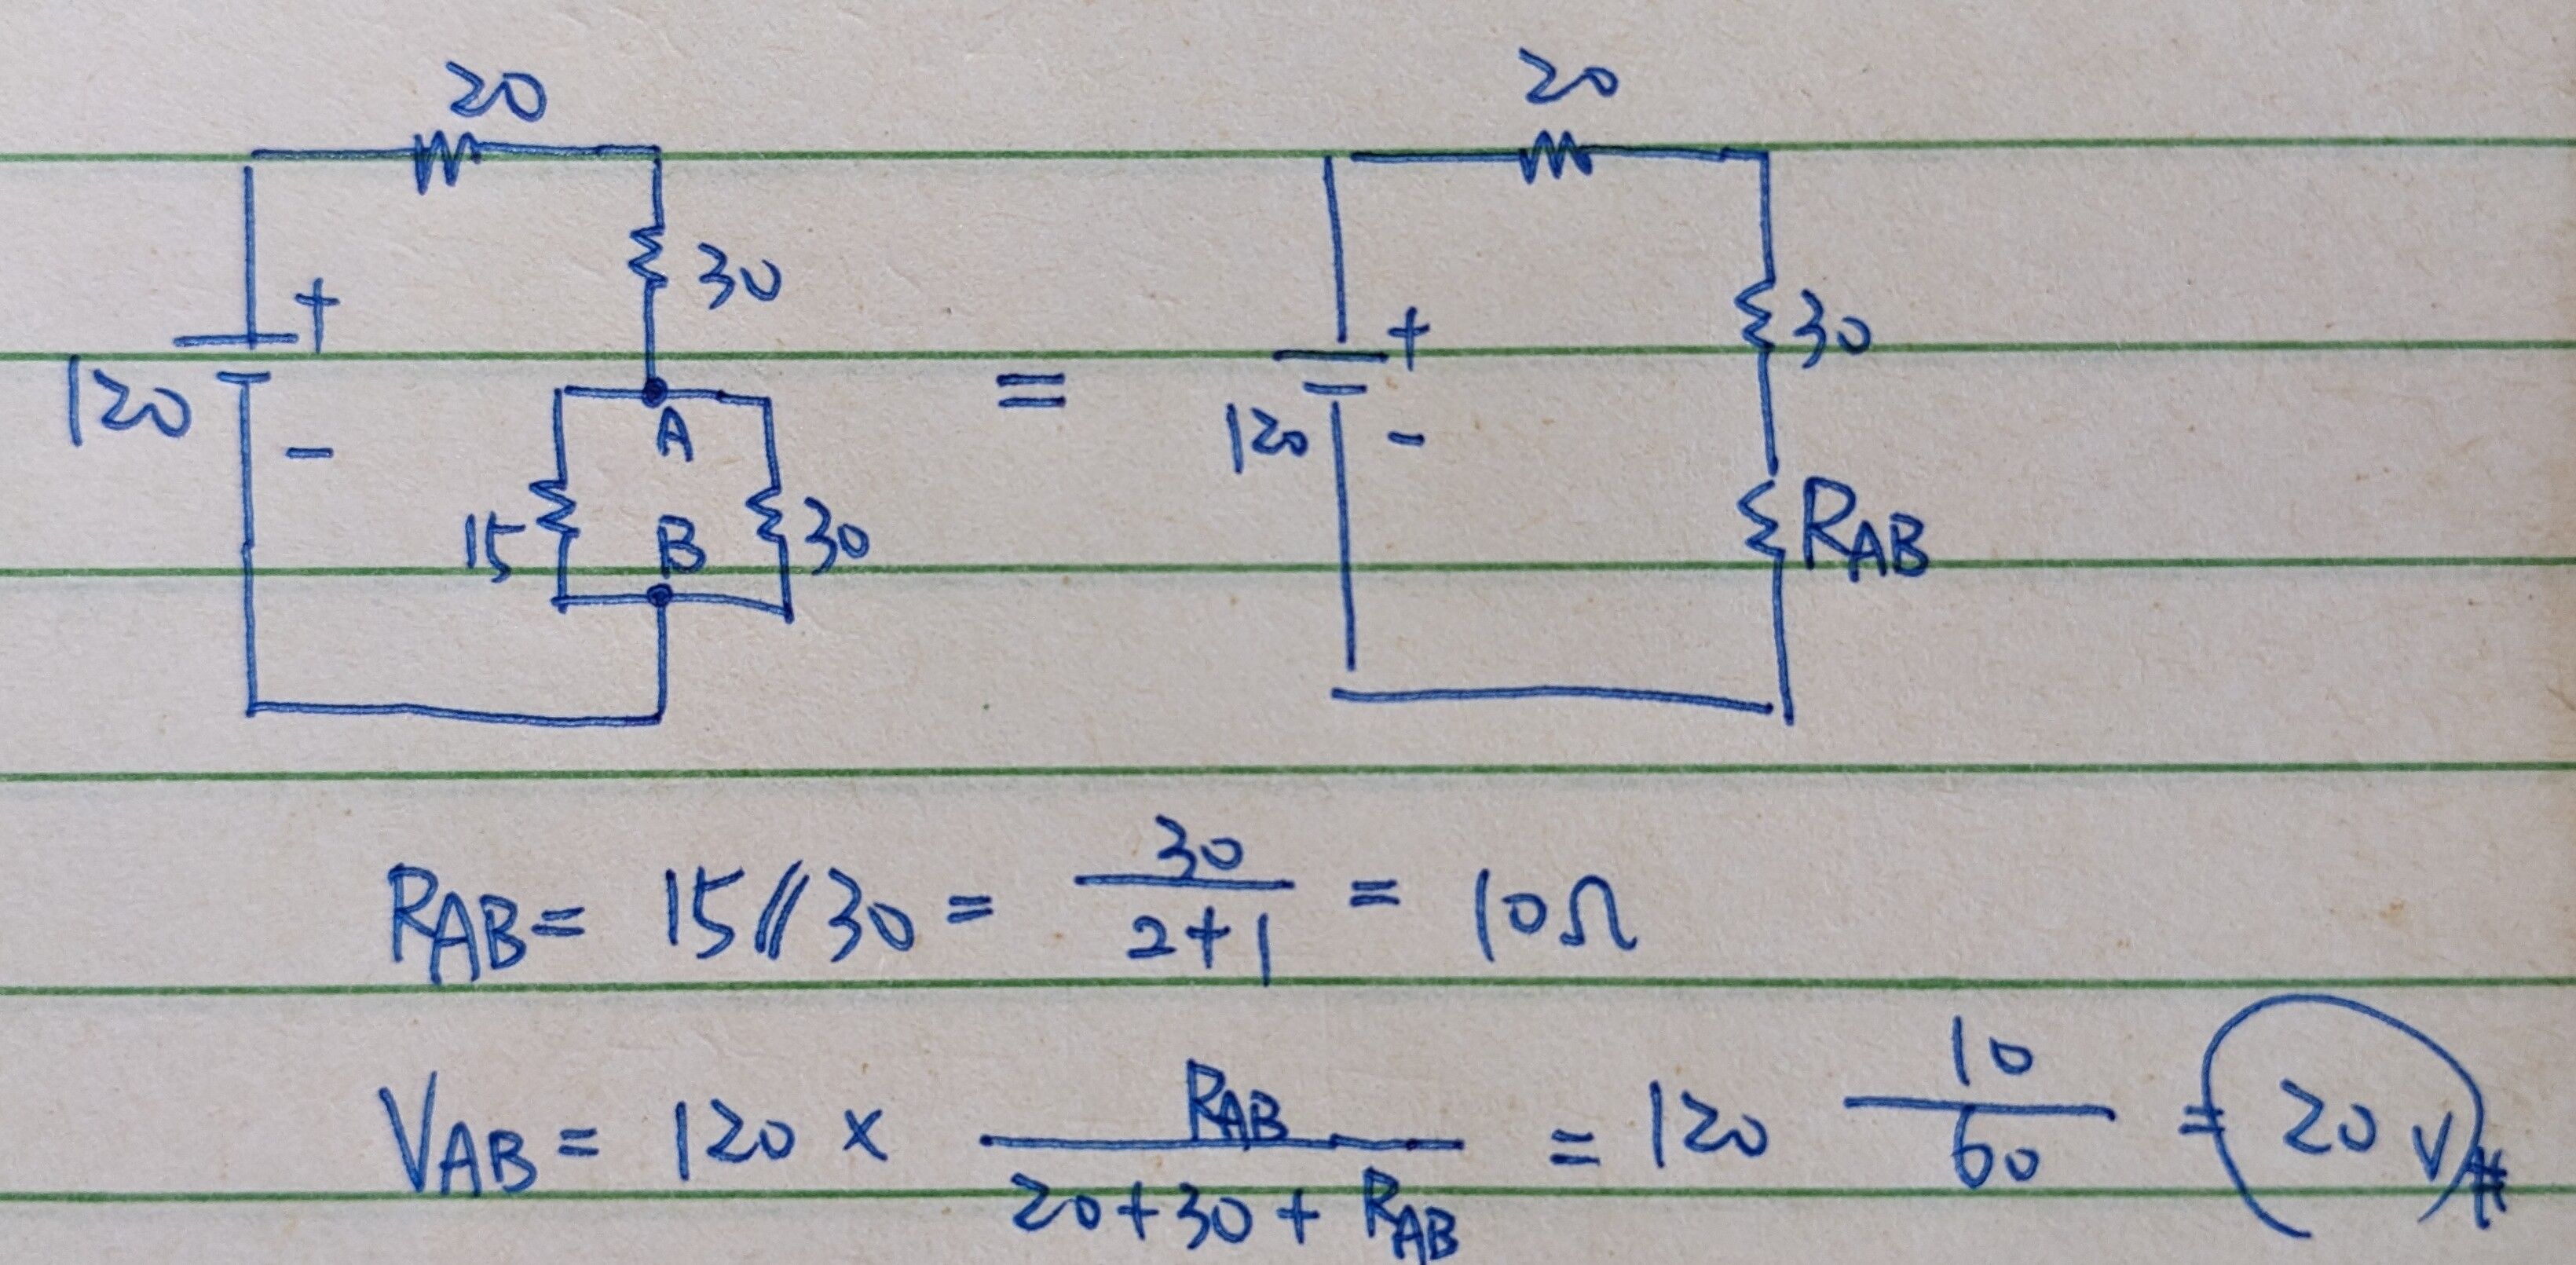 20
30
+
120
-
A
15
B
30
=
20
30
+
120
-
R_AB
R_AB = 15 // 30 = 30/(2+1) = 10Ω
V_AB = 120 × R_AB/(20+30+R_AB) = 120 10/60 = 20 V #